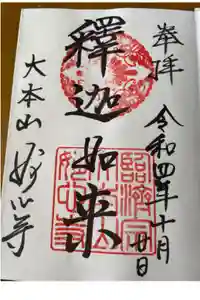 奉拝
令和四年十月廿日
釋迦如来
大本山妙心寺